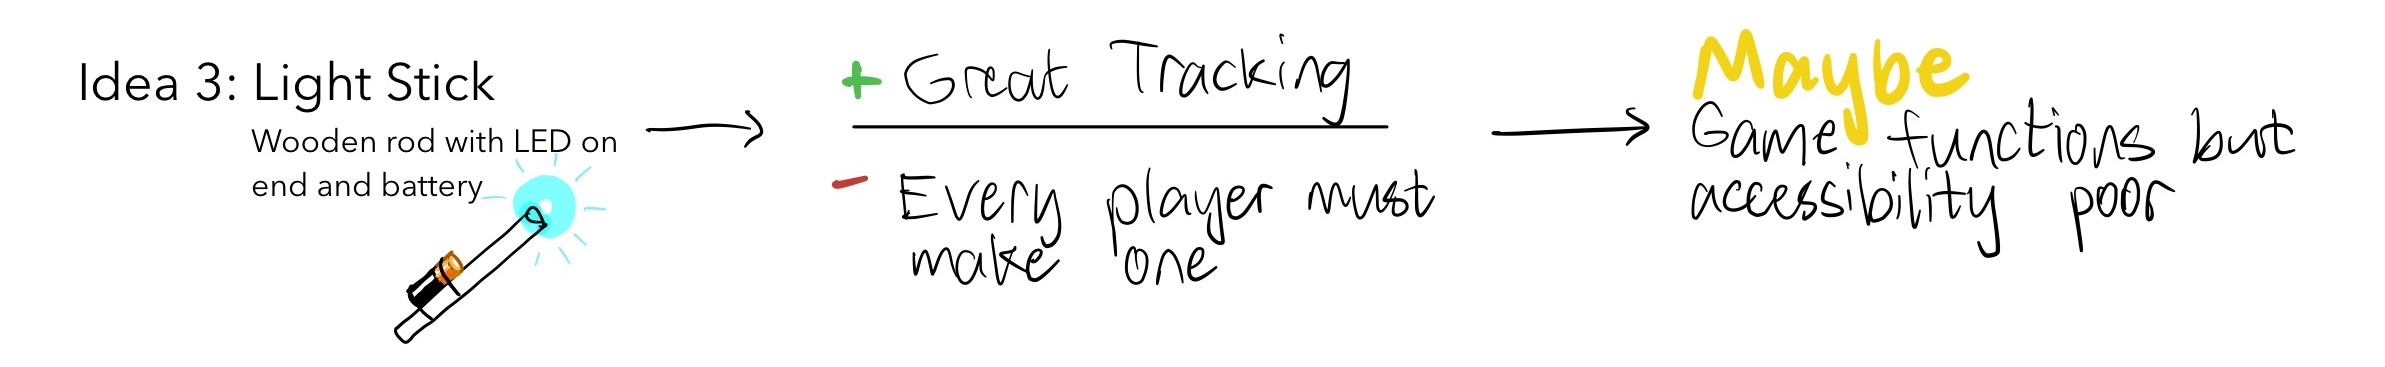 Idea 3: Light Stick
Wooden rod with LED on
end and battery
+ Great Tracking
- Every player must
make one
Maybe
Game functions but
accessibility poor